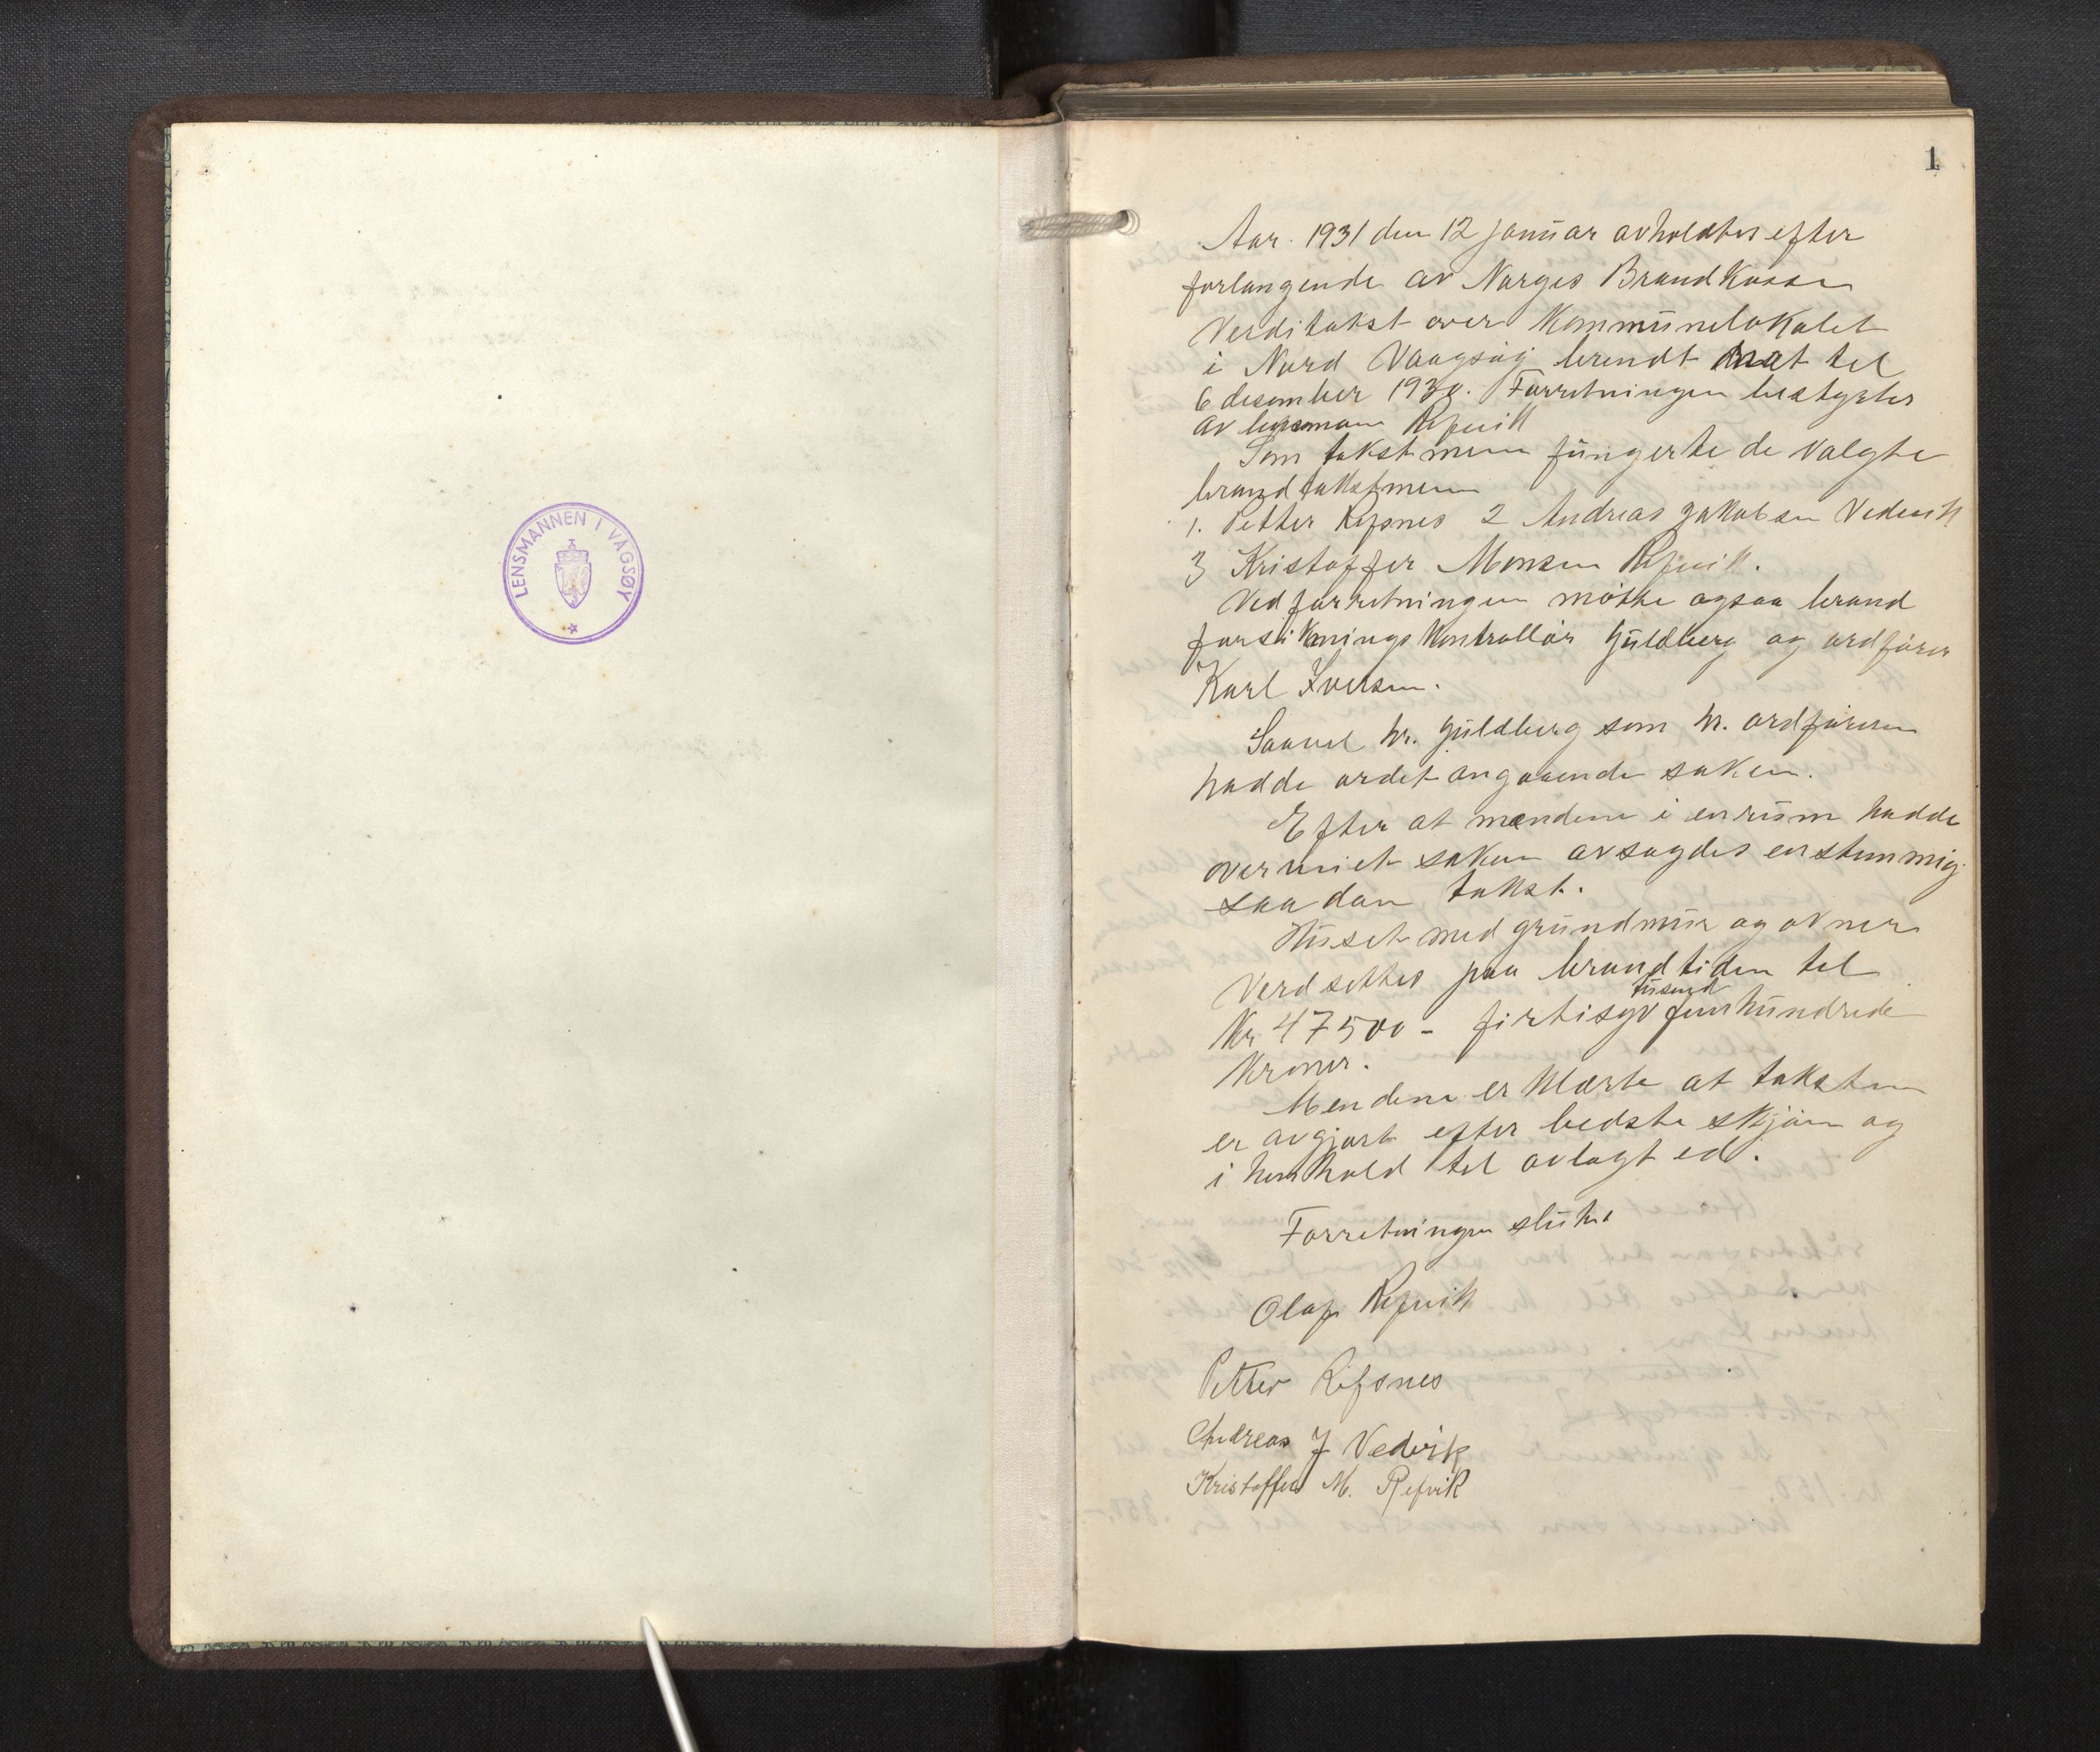 LENSMANNEN I VÅGSØY
1
Aar. 1931 den 12 januar avholdtes efter
forlangende av Norges Brandkasse
Verditakst over Kommunelokalet
i Nord Vaagsøy brendt nat til
6 desember 1930. Forretningen bestyrtes
av lensmann Refvik
Som takstmenn fungerte de valgte
brandtakstmenn
1. Petter Refsnes 2 Andreas Jakobsen Vedvik
3 Kristoffer Monsen Refvik.
Ved forretningen møtte ogsaa brand
forsikringskontrollør Guldberg og ordfører
Karl Iversen.
Saavel hr. Guldberg som hr. ordføreren
hadde ordet angaaende saken.
Efter at mændene i enrum hadde
overveiet saken avsagdes enstemmig
saadan takst.
Huset med grundmur og ovner
verdsettes paa brandtiden til
Kr 47500 - firtisyv tusend femhundrede
Kroner.
Mendene erklærte at taksten
er avgjort efter bedste skjøn og
i henhold til avlagt ed.
Forretningen sluttet
Olaf Refvik
Petter Refsnes
Andreas J Vedvik
Kristoffer M. Refvik